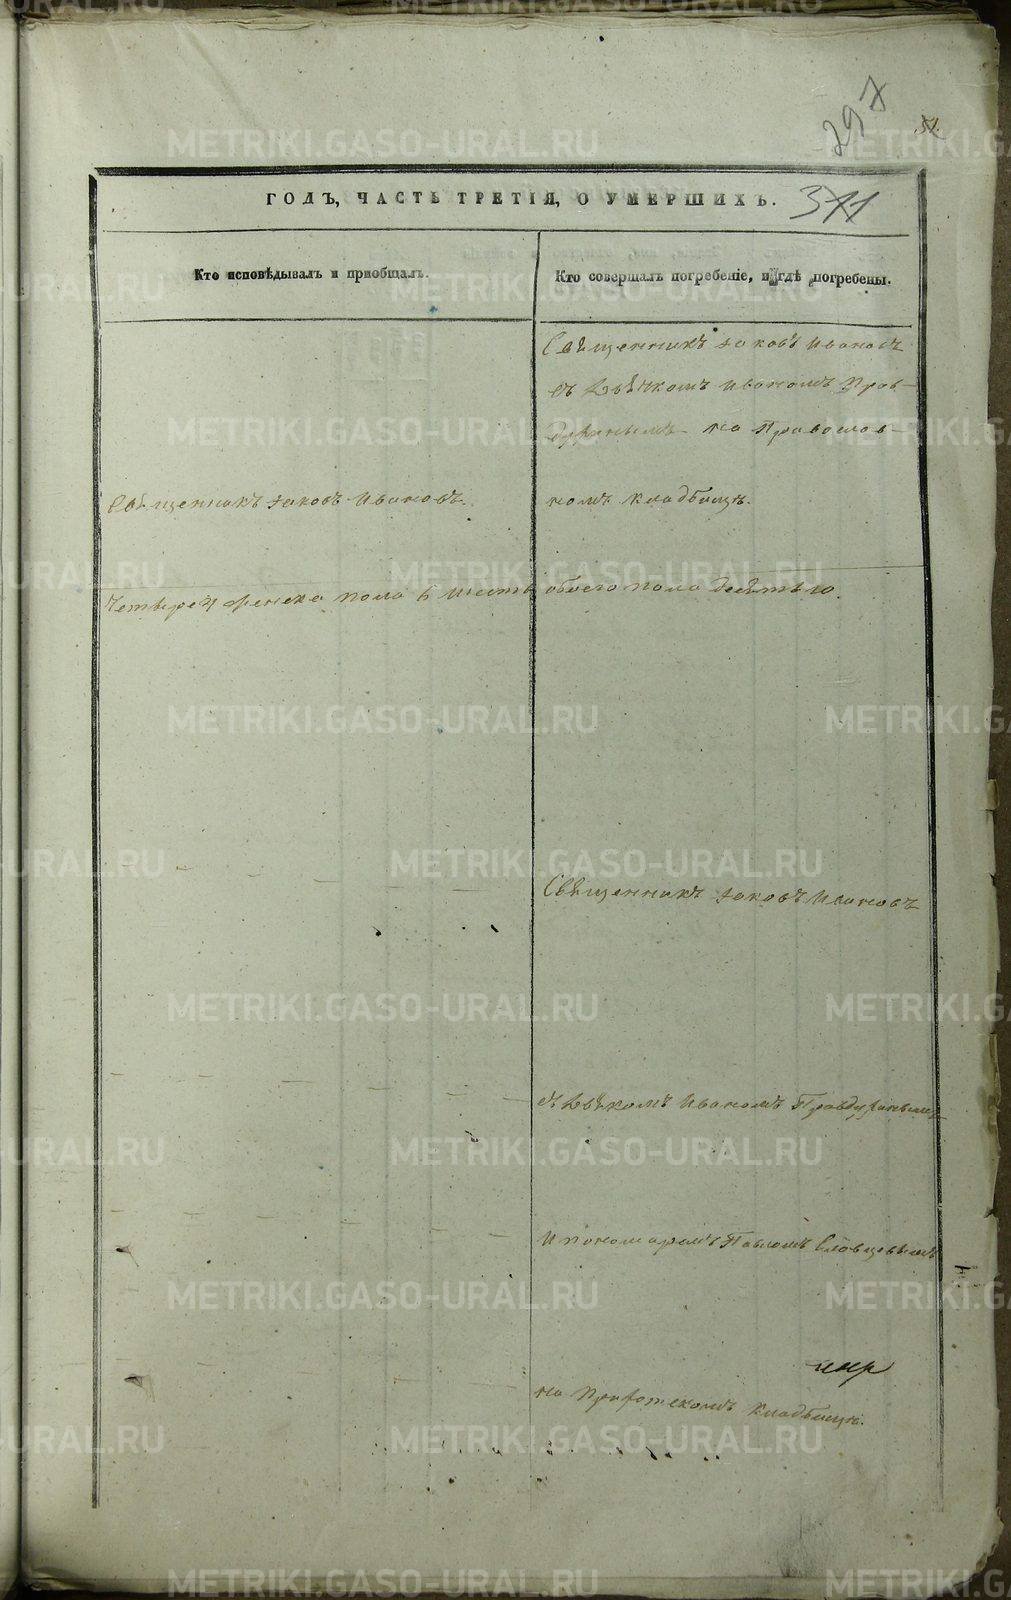 297
51.
ГОДЪ, ЧАСТЬ ТРЕТІЯ, О УМЕРШИХЪ.
311
Кто исповѣдывалъ и приобщалъ.
Кто совершалъ погребеніе, и гдѣ погребены.
Священникъ Іаковъ Ивановъ.
Священникъ Іаковъ Ивановъ
съ Дьячкомъ Иваномъ
на Православ-
номъ кладбищѣ.
женска пола 6 шесть обоего пола десять 10.
Священникъ Іаковъ Ивановъ
съ Дьячкомъ Иваномъ
и пономаремъ Павломъ Словцовымъ
на Приходскомъ кладбищѣ.
METRIKI.GASO-URAL.RU